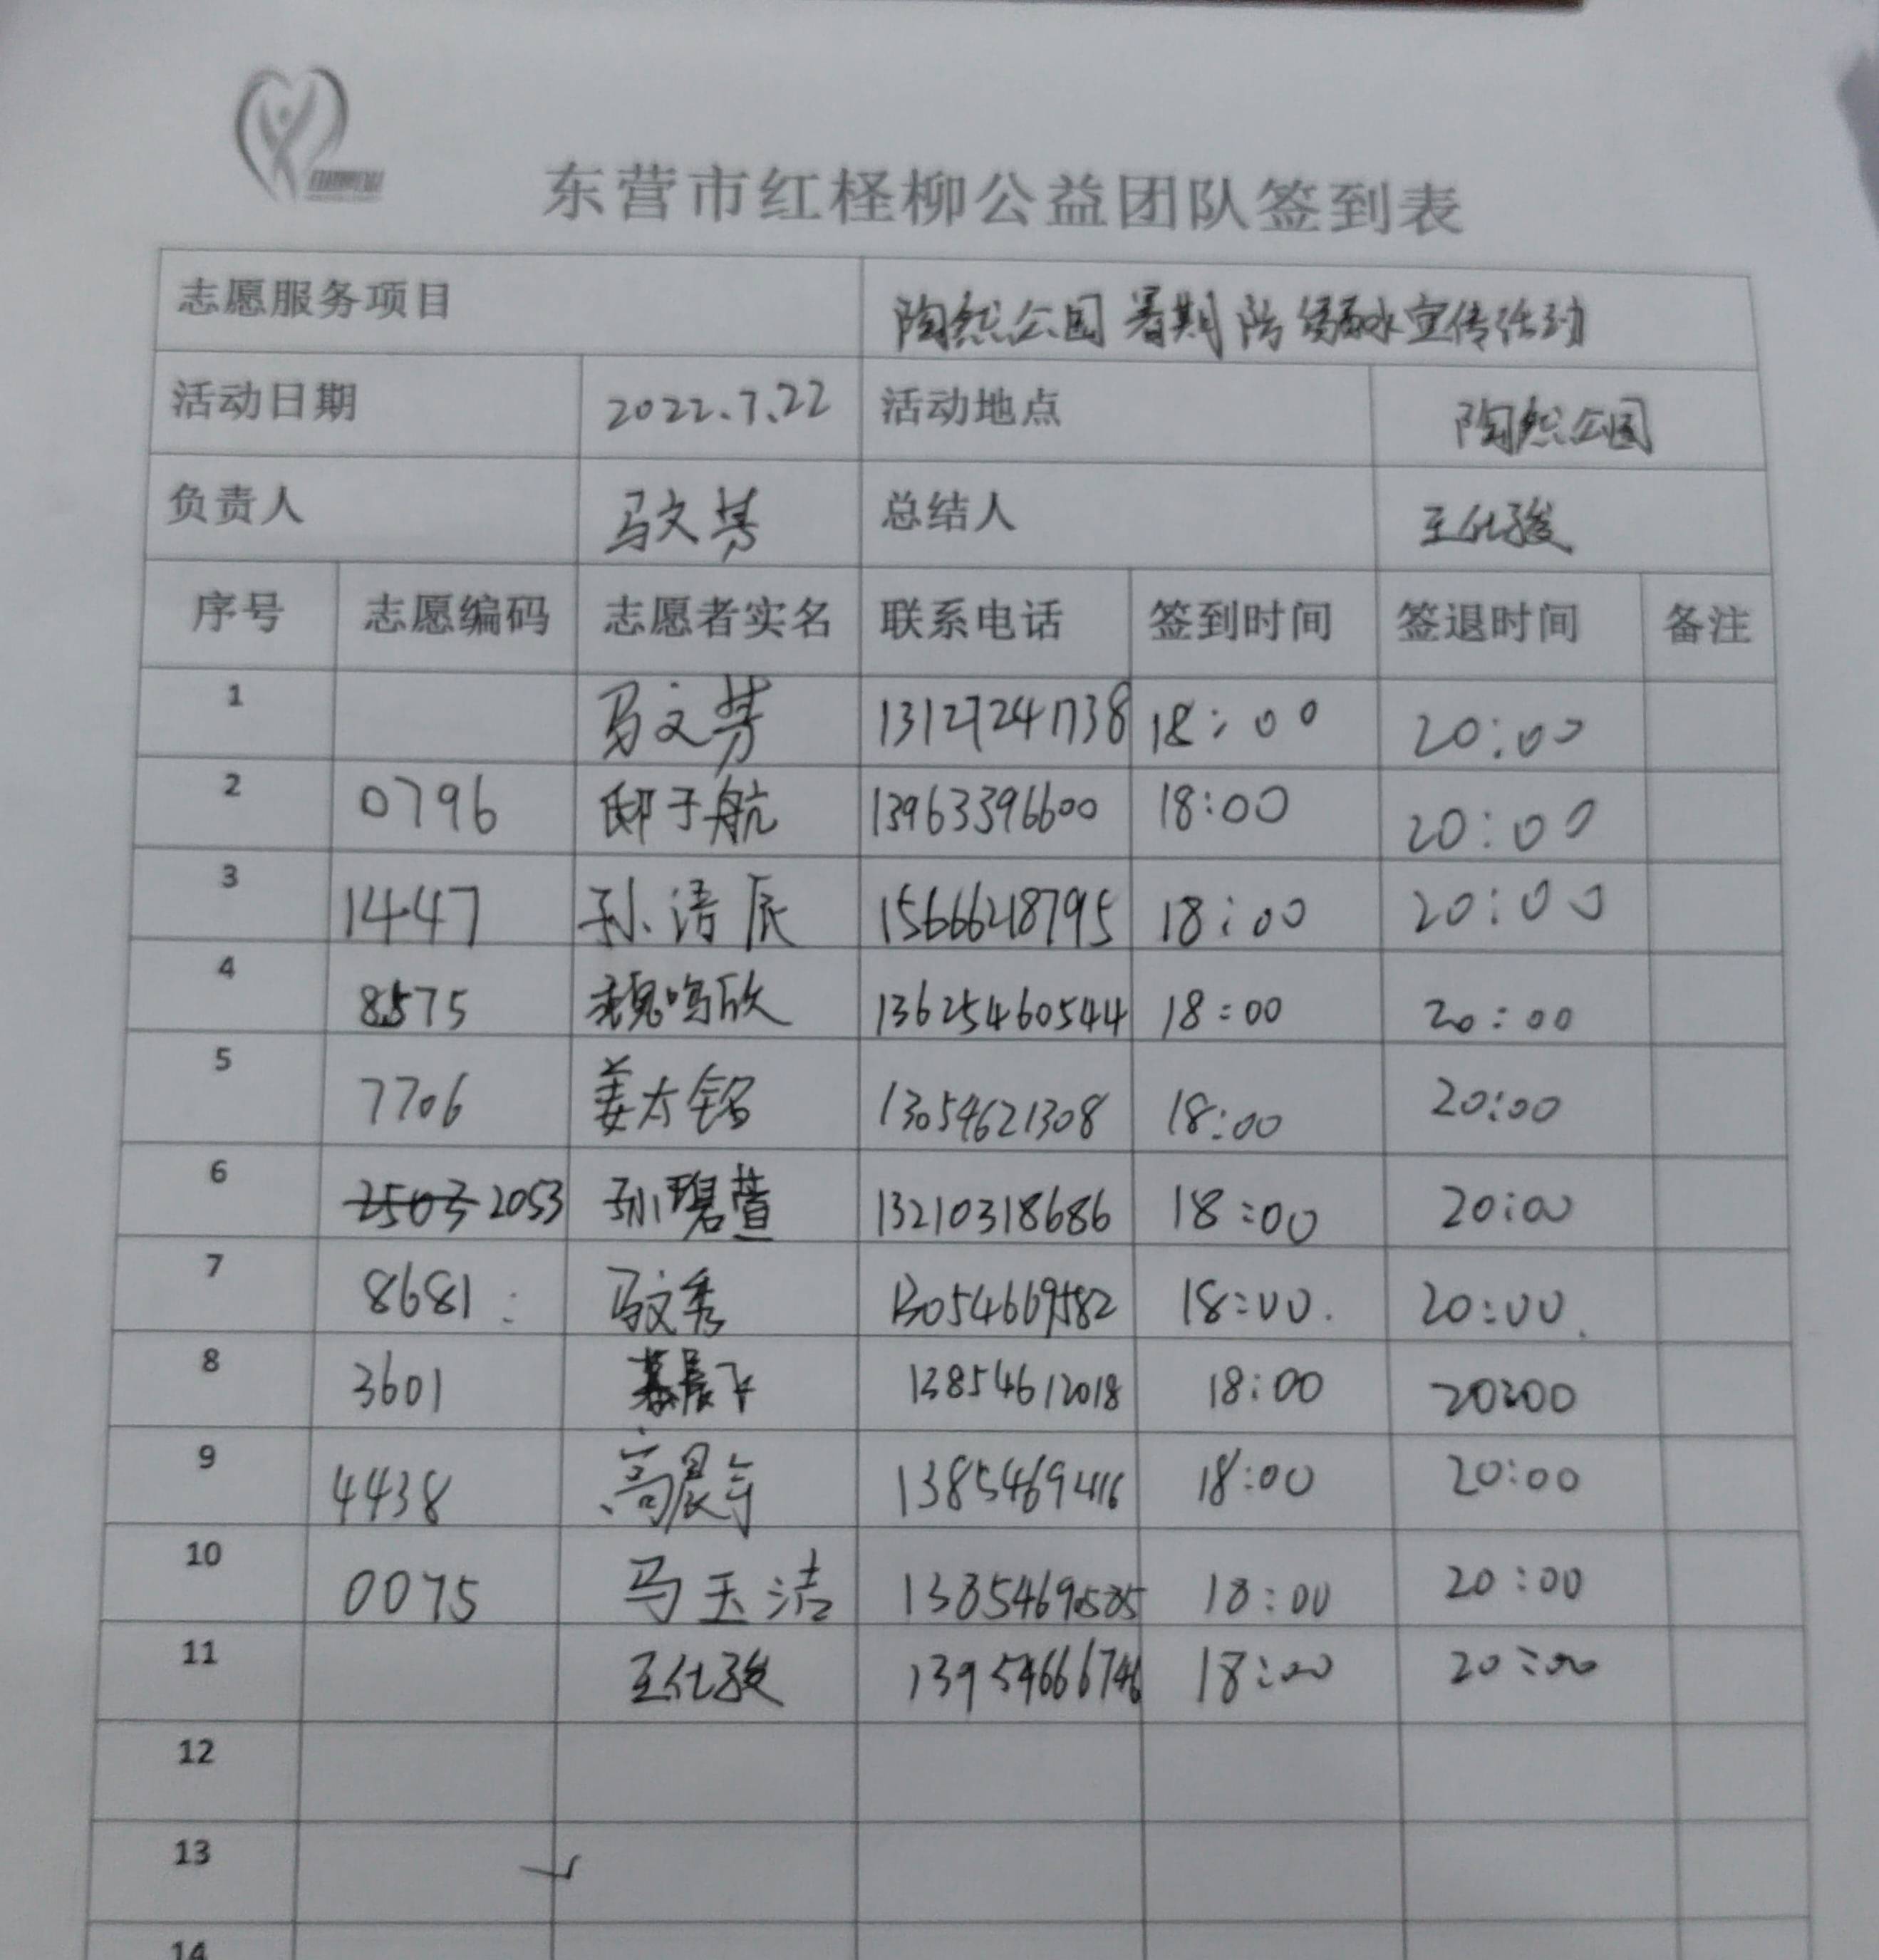 东营市红柽柳公益团队签到表
志愿服务项目 陶然公园暑期防溺水宣传活动
活动日期 2022.7.22 活动地点 陶然公园
负责人 马文芳 总结人 王仕骏
序号 志愿编码 志愿者实名 联系电话 签到时间 签退时间 备注
1 马文芳 13127241738 18:00 20:00
2 0796 邸于航 13963396600 18:00 20:00
3 1447 孙浯辰 15666218795 18:00 20:00
4 8575 魏鸣欣 13625460544 18:00 20:00
5 7706 姜太铭 13054621308 18:00 20:00
6 2503 2053 孙珺萱 13210318686 18:00 20:00
7 8681 马文秀 13054669582 18:00. 20:00.
8 3601 綦晨飞 13854612018 18:00 20:00
9 4438 高晨宇 1385469416 18:00 20:00
10 0075 马玉洁 13854690585 18:00 20:00
11 王仕骏 13954666746 18:00 20:00
12
13
14